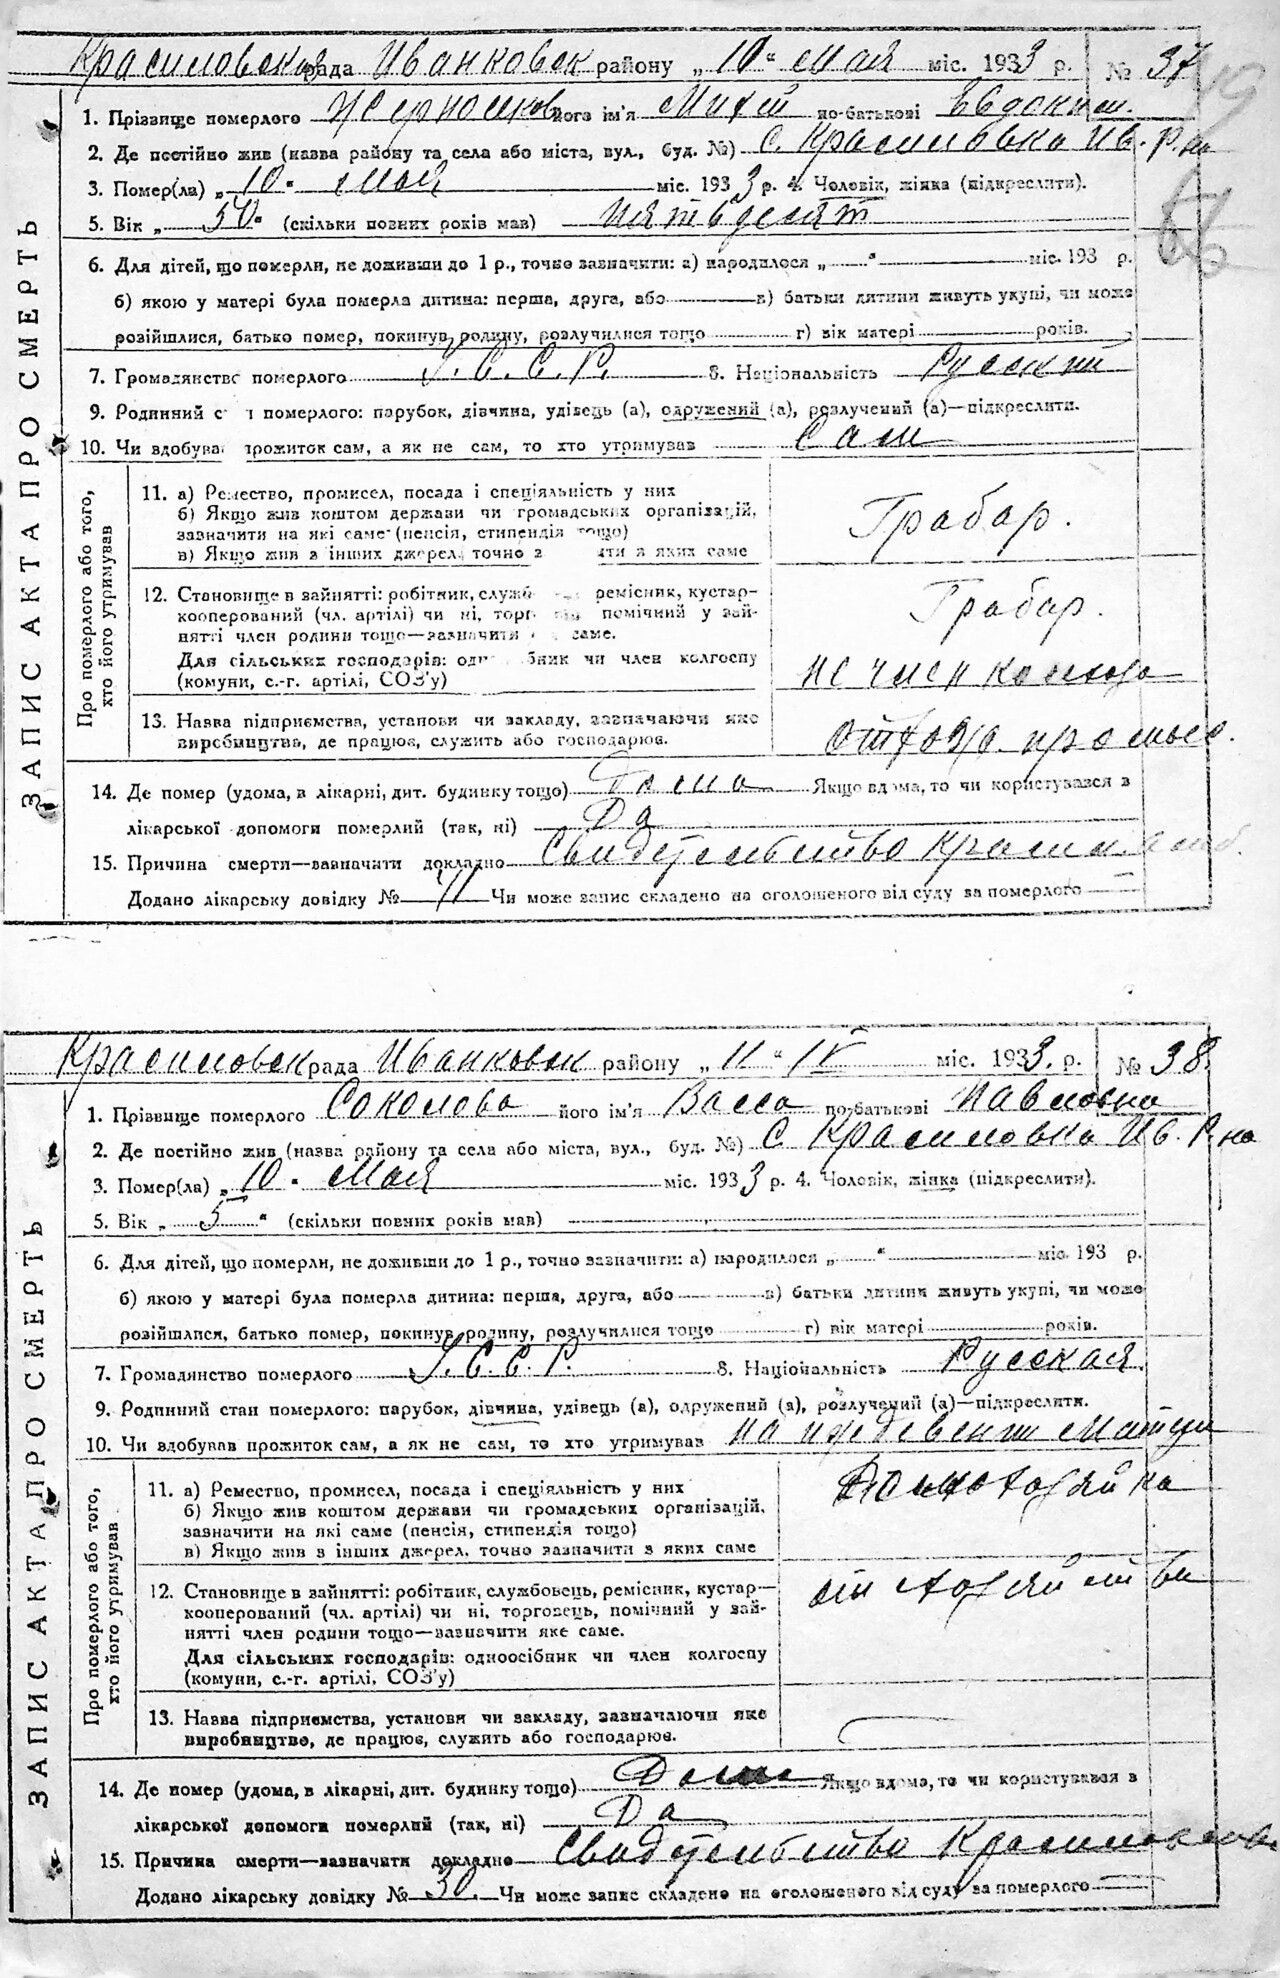 Красиловская рада Иванковск району „ 10 " мая міс. 1933 р. № 37
1. Прізвище померлого його ім'я Михей по-батькові Евдоким.
2. Де постійно жив (назва району та села або міста, вул., буд. №) С. Красиловка Ив. Р.на
3. Помер(ла) „ 10 " мая міс. 1933 р. 4. Чоловік, жінка (підкреслити).
5. Вік „ 50 " (скільки повних років мав) пятьдесят
6. Для дітей, що померли, не доживши до 1 р., точно зазначити: а) народилося „ " міс. 193 р.
б) якою у матері була померла дитина: перша, друга, або в) батьки дитини живуть укупі, чи може
розійшлися, батько помер, покинув родину, розлучилися тощо г) вік матері років.
7. Громадянство померлого У.С.С.Р. 8. Національність Русский
9. Родинний с н померлого: парубок, дівчина, удівець (а), одружений (а), розлучений (а)—підкреслити.
10. Чи вдобува прожиток сам, а як не сам, то хто утримував Сам
ЗАПИС АКТА ПРО СМЕРТЬ
Про померлого або того, хто його утримував
11. а) Ремество, промисел, посада і спеціяльність у них
б) Якщо жив коштом держави чи громадських організацій,
зазначити на які саме (пенсія, стипендія тощо)
в) Якщо жив з інших джерел, точно з ити з яких саме
Грабар.
12. Становище в зайнятті: робітник, служб ремісник, кустар-
кооперований (чл. артілі) чи ні, торг помічний у зай-
нятті член родини тощо—зазначити саме.
Для сільських господарів: од бник чи член колгоспу
(комуни, с.-г. артілі, СОЗ'у)
Грабар.
не член колхоза
13. Назва підприємства, установи чи закладу, зазначаючи яке
виробництво, де працює, служить або господарює.
отхожо. промысл.
14. Де помер (удома, в лікарні, дит. будинку тощо) Дома Якщо вдома, то чи користувався в
лікарської допомоги померлий (так, ні) Да
15. Причина смерти—зазначити докладно Свидетельство
Додано лікарську довідку № Чи може запис складено на оголошеного від суду за померлого
Красиловск рада Иванковск району „ 11 " IV міс. 1933. р. № 38.
1. Прізвище померлого Соколова його ім'я Васса по-батькові Павловна
2. Де постійно жив (назва району та села або міста, вул., буд. №) С. Красиловка Ив. Р.на
3. Помер(ла) „ 10 " мая міс. 1933 р. 4. Чоловік, жінка (підкреслити).
5. Вік „ 5 " (скільки повних років мав)
6. Для дітей, що померли, не доживши до 1 р., точно зазначити: а) народилося „ " міс. 193 р.
б) якою у матері була померла дитина: перша, друга, або в) батьки дитини живуть укупі, чи може
розійшлися, батько помер, покинув родину, розлучилися тощо г) вік матері років.
7. Громадянство померлого У.С.С.Р. 8. Національність Русская
9. Родинний стан померлого: парубок, дівчина, удівець (а), одружений (а), розлучений (а)—підкреслити.
10. Чи вдобував прожиток сам, а як не сам, то хто утримував на иждевении матери
ЗАПИС АКТА ПРО СМЕРТЬ
Про померлого або того, хто його утримував
11. а) Ремество, промисел, посада і спеціяльність у них
б) Якщо жив коштом держави чи громадських організацій,
зазначити на які саме (пенсія, стипендія тощо)
в) Якщо жив з інших джерел, точно зазначити з яких саме
Домохозяйка
12. Становище в зайнятті: робітник, службовець, ремісник, кустар—
кооперований (чл. артілі) чи ні, торговець, помічний у зай-
нятті член родини тощо—зазначити яке саме.
Для сільських господарів: одноосібник чи член колгоспу
(комуни, с.-г. артілі, СОЗ'у)
13. Назва підприємства, установи чи закладу, зазначаючи яке
виробництво, де працює, служить або господарює.
14. Де помер (удома, в лікарні, дит. будинку тощо) Дома Якщо вдома, то чи користувався в
лікарської допомоги померлий (так, ні) Да
15. Причина смерти—зазначити докладно Свидетельство
Додано лікарську довідку № 30. Чи може запис складено на оголошеного від суду за померлого